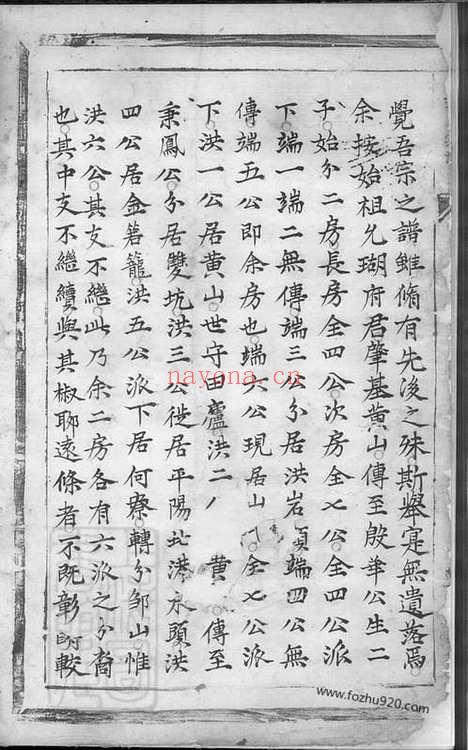 覺吾宗之譜雖脩有先後之殊斯舉寔無遺落焉
余按始祖允瑚府君肇基黄山傳至殷華公生二
子始分二房長房全四公次房全七公全四公派
下端一端二無傳端三公分居洪岩頭端四公無
傳端五公即余房也端六公現居山 全七公派
下洪一公居黄山世守田廬洪二 黄 傳至
秉鳳公分居雙坑洪三公徙居平陽北港水頭洪
四公居金箬籠洪五公派下居何寮轉分邹山惟
洪六公其支不繼此乃余二房各有六派之分裔
也其中支不繼續與其椒聊遠條者不既彰明較
nayona.cn
www.fozhu920.com